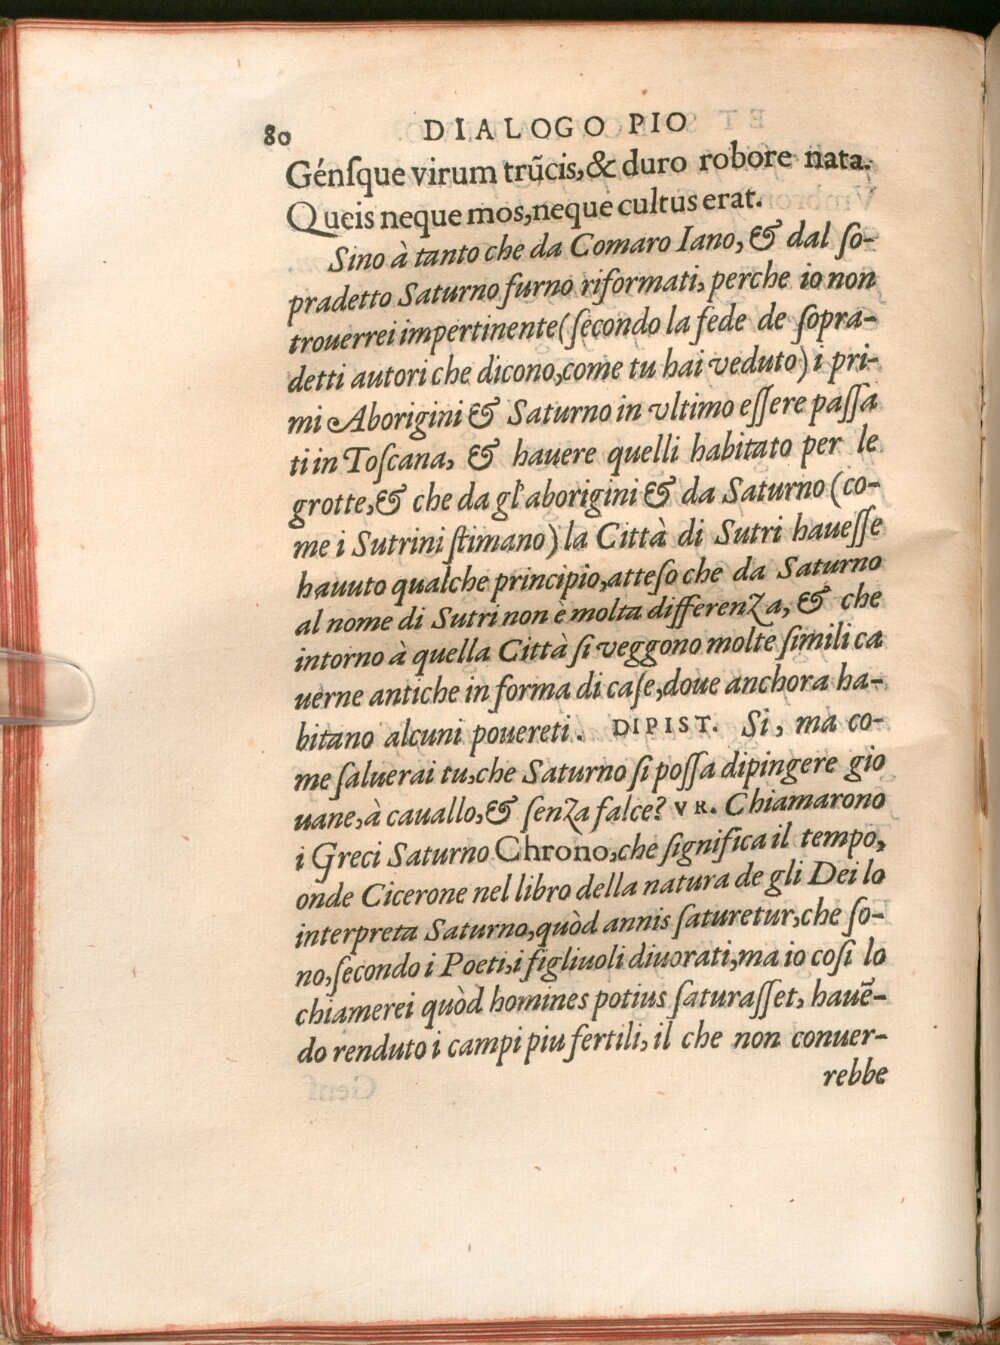 80 DIALOGO PIO
Génſque virum trūcis,& duro robore nata.
Queis neque mos,neque cultus erat.
Sino à tanto che da Comaro Iano, & dal ſo-
pradetto Saturno furno riformati, perche io non
trouerrei impertinente(ſecondo la fede de ſopra-
detti autori che dicono,come tu hai veduto) i pri-
mi Aborigini & Saturno in vltimo eſſere paſſa
ti in Toſcana, & hauere quelli habitato per le
grotte,& che da gl'aborigini & da Saturno (co-
me i Sutrini ſtimano) la Città di Sutri haueſſe
hauuto qualche principio,atteſo che da Saturno
al nome di Sutri non è molta differenza, & che
intorno à quella Città ſi veggono molte ſimili ca
uerne antiche in forma di caſe,doue anchora ha-
bitano alcuni pouereti. DIPIST. Si, ma co-
me ſaluerai tu,che Saturno ſi poſſa dipingere gio
uane,à cauallo,& ſenza falce? VR. Chiamarono
i Greci Saturno Chrono,che ſignifica il tempo,
onde Cicerone nel libro della natura de gli Dei lo
interpreta Saturno,quòd annis ſaturetur,che ſo-
no,ſecondo i Poeti,i figliuoli diuorati,ma io coſi lo
chiamerei quòd homines potius ſaturaſſet, hauē-
do renduto i campi piu fertili, il che non conuer-
rebbe